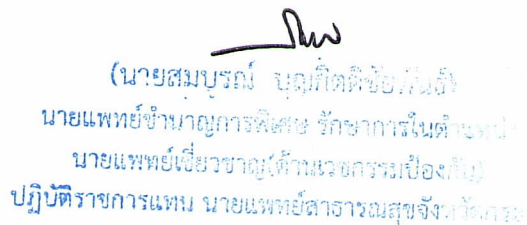 (นายสมบูรณ์ บุญกิตติชัยพันธ์)
นายแพทย์ชำนาญการพิเศษ รักษาการในตำแหน่ง
นายแพทย์เชี่ยวชาญ(ด้านเวชกรรมป้องกัน)
ปฏิบัติราชการแทน นายแพทย์สาธารณสุขจังหวัด